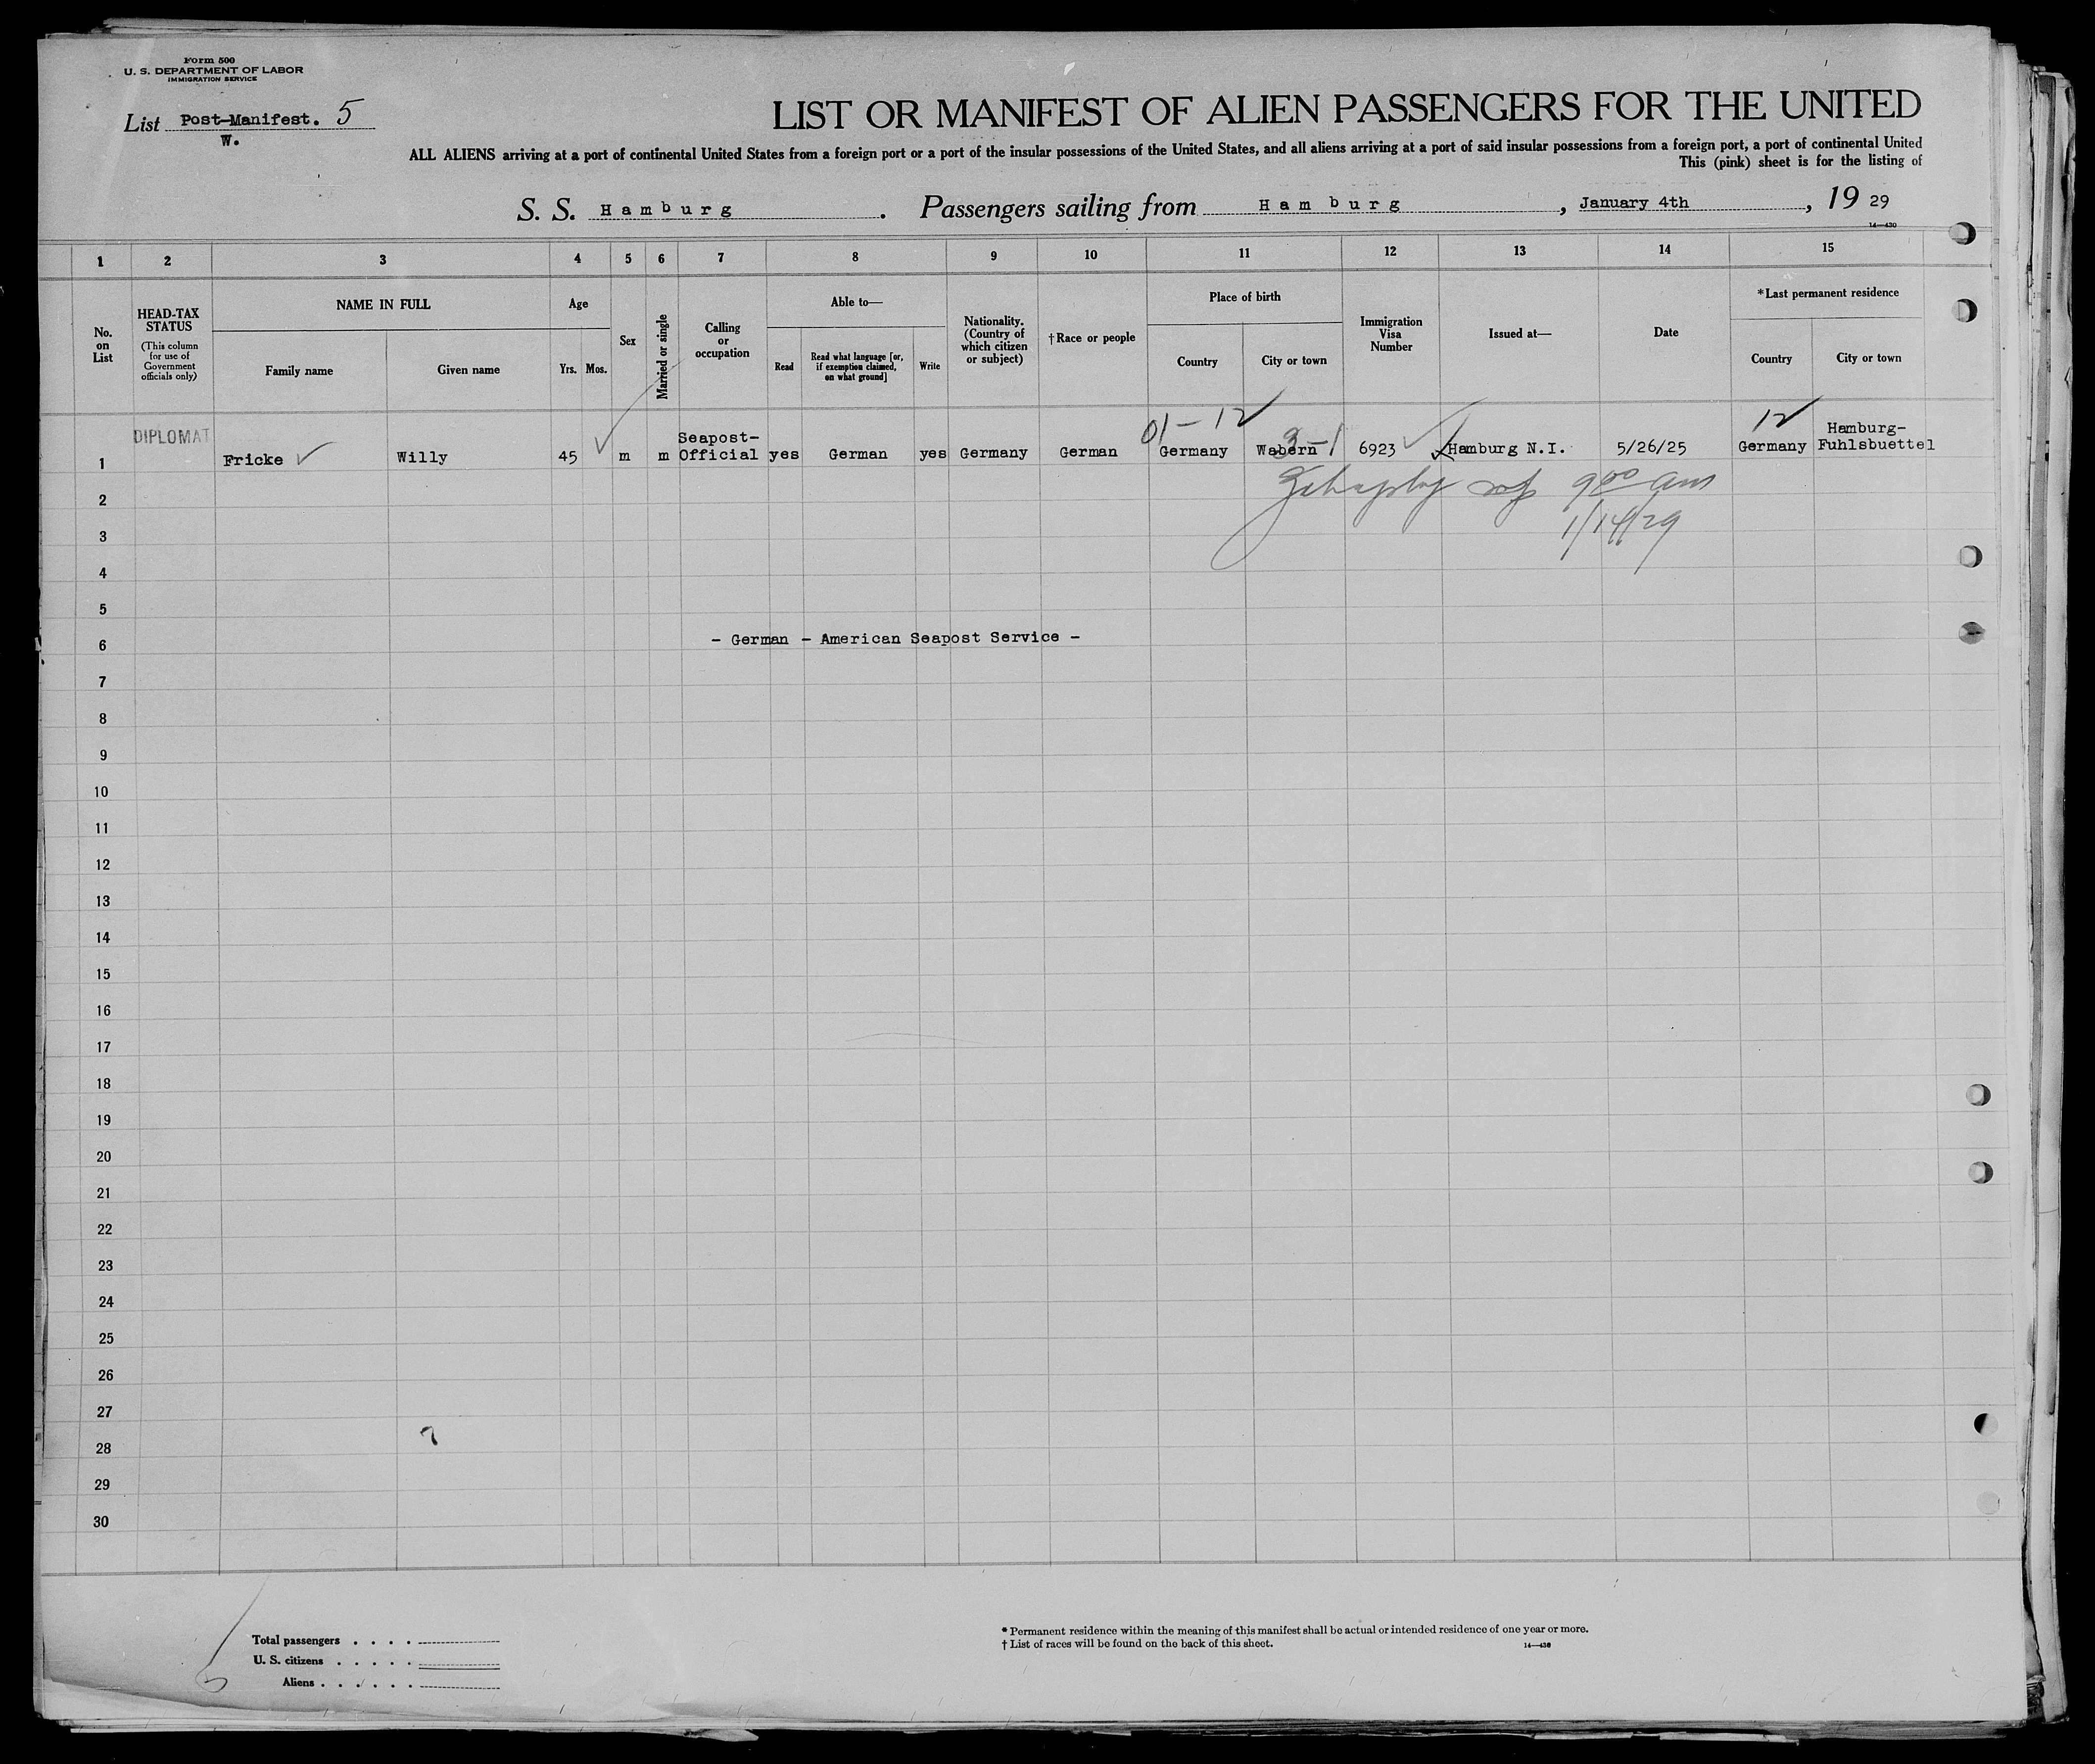 Form 500
U. S. DEPARTMENT OF LABOR
IMMIGRATION SERVICE
List Post-Manifest. 5
W.
LIST OR MANIFEST OF ALIEN PASSENGERS FOR THE UNITED
ALL ALIENS arriving at a port of continental United States from a foreign port or a port of the insular possessions of the United States, and all aliens arriving at a port of said insular possessions from a foreign port, a port of continental United
This (pink) sheet is for the listing of
S. S. Hamburg. Passengers sailing from Hamburg, January 4th, 19 29
14—430
1 2 3 4 5 6 7 8 9 10 11 12 13 14 15
No. on List
HEAD-TAX STATUS
(This column for use of Government officials only)
NAME IN FULL
Family name Given name
Age
Yrs. Mos.
Sex
Married or single
Calling or occupation
Able to—
Read
Read what language [or, if exemption claimed, on what ground]
Write
Nationality. (Country of which citizen or subject)
†Race or people
Place of birth
Country City or town
Immigration Visa Number
Issued at—
Date
*Last permanent residence
Country City or town
01-12 3-1 12
1 DIPLOMAT Fricke Willy 45 m m Seapost-Official yes German yes Germany German Germany Wabern 6923 Hamburg N.I. 5/26/25 Germany Hamburg-Fuhlsbuettel
900 am
1/14/29
2
3
4
5
6 - German - American Seapost Service -
7
8
9
10
11
12
13
14
15
16
17
18
19
20
21
22
23
24
25
26
27
28
29
30
Total passengers . . . .
U. S. citizens . . . . .
Aliens . . . . . .
* Permanent residence within the meaning of this manifest shall be actual or intended residence of one year or more.
† List of races will be found on the back of this sheet.
14—430